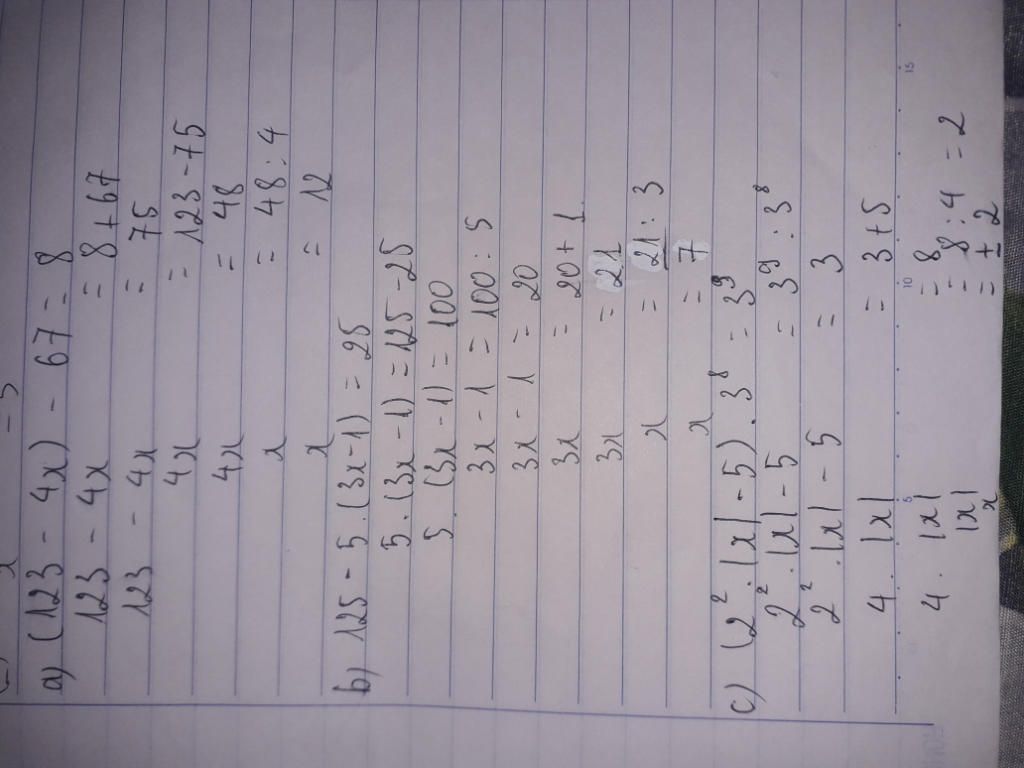 a) (123 - 4x) - 67 = 8
123 - 4x = 8 + 67
123 - 4x = 75
4x = 123 - 75
4x = 48
x = 48 : 4
x = 12
b) 125 - 5.(3x-1) = 25
5.(3x-1) = 125 - 25
5.(3x-1) = 100
3x - 1 = 100 : 5
3x - 1 = 20
3x = 20 + 1
3x = 21
x = 21 : 3
x = 7
c) (2² . |x| - 5) . 3⁸ = 3⁹
2² . |x| - 5 = 3⁹ : 3⁸
2² . |x| - 5 = 3
4 . |x| = 3 + 5
4 . |x| = 8
|x| = 8 : 4 = 2
x = ± 2
5 10 15